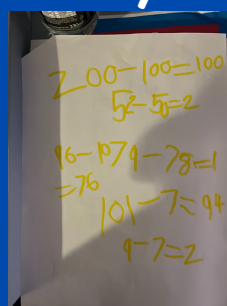 200-100=100
52-50=2
79-78=1
=76
101-7=94
9-7=2